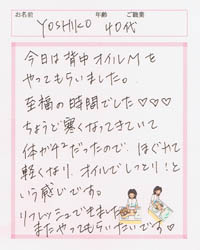 お名前 年齢 ご職業
YOSHIKO 40代
今日は背中オイルMを
やってもらいました。
至福の時間でした♡♡♡
ちょうど寒くなってきていて
体がガチガチだったので ほぐれて
軽くなり、オイルでしっとり!と
いう感じです。
リフレッシュできました。
またやってもらいたいです♥